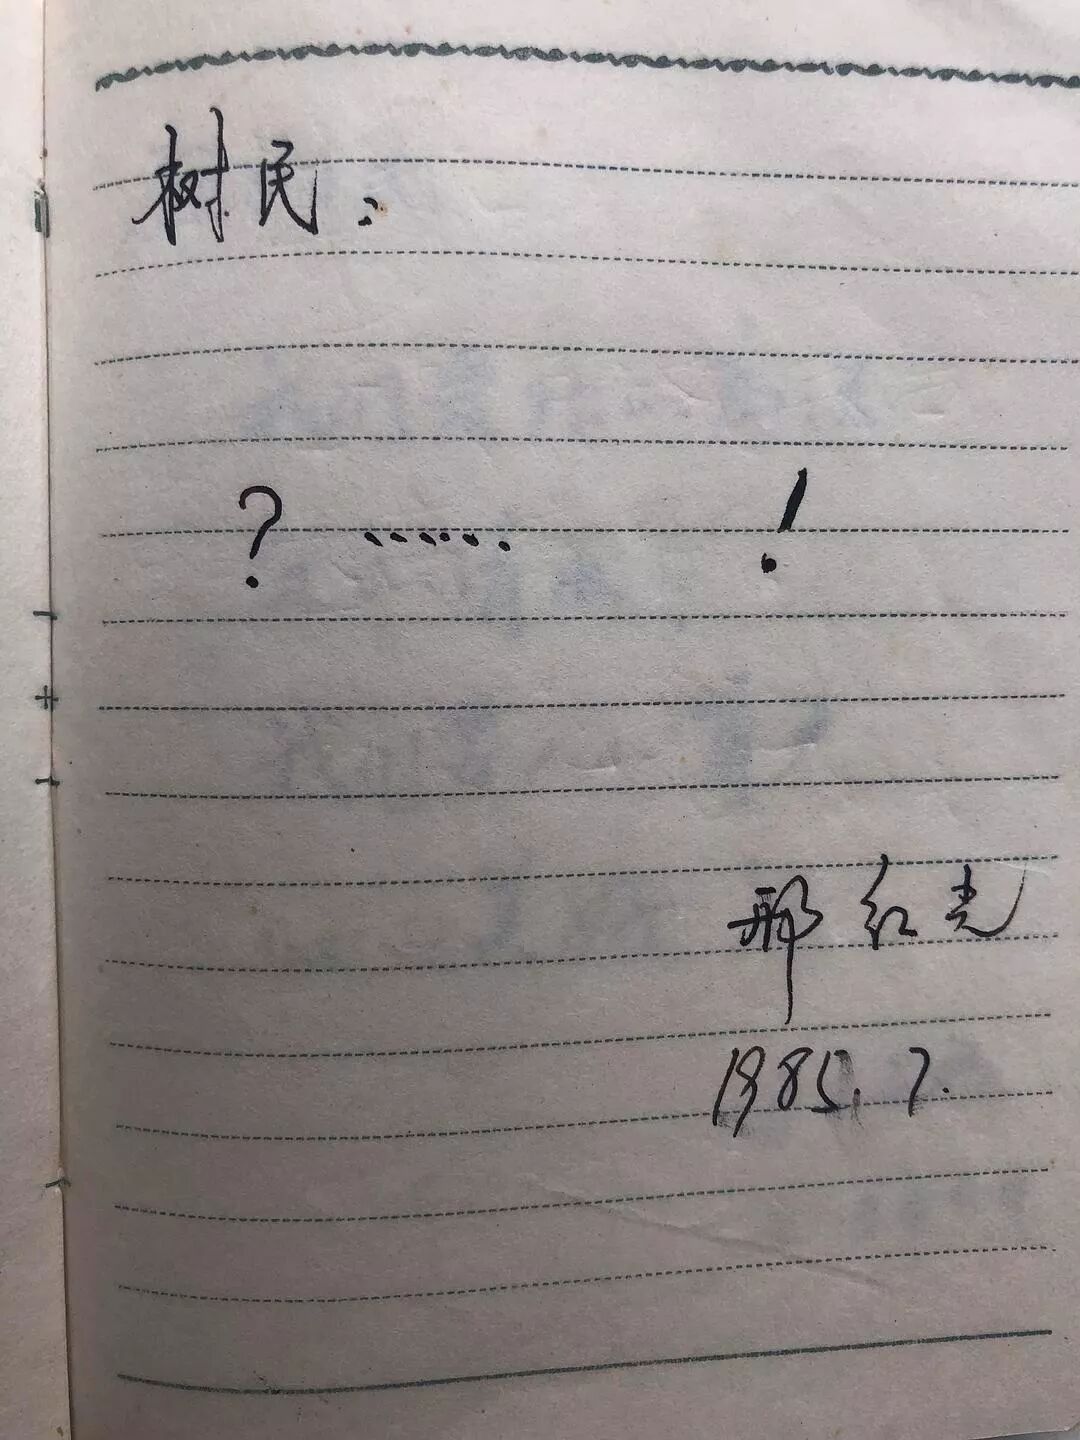 树民：
？…… ！
邢红光
1985.7.